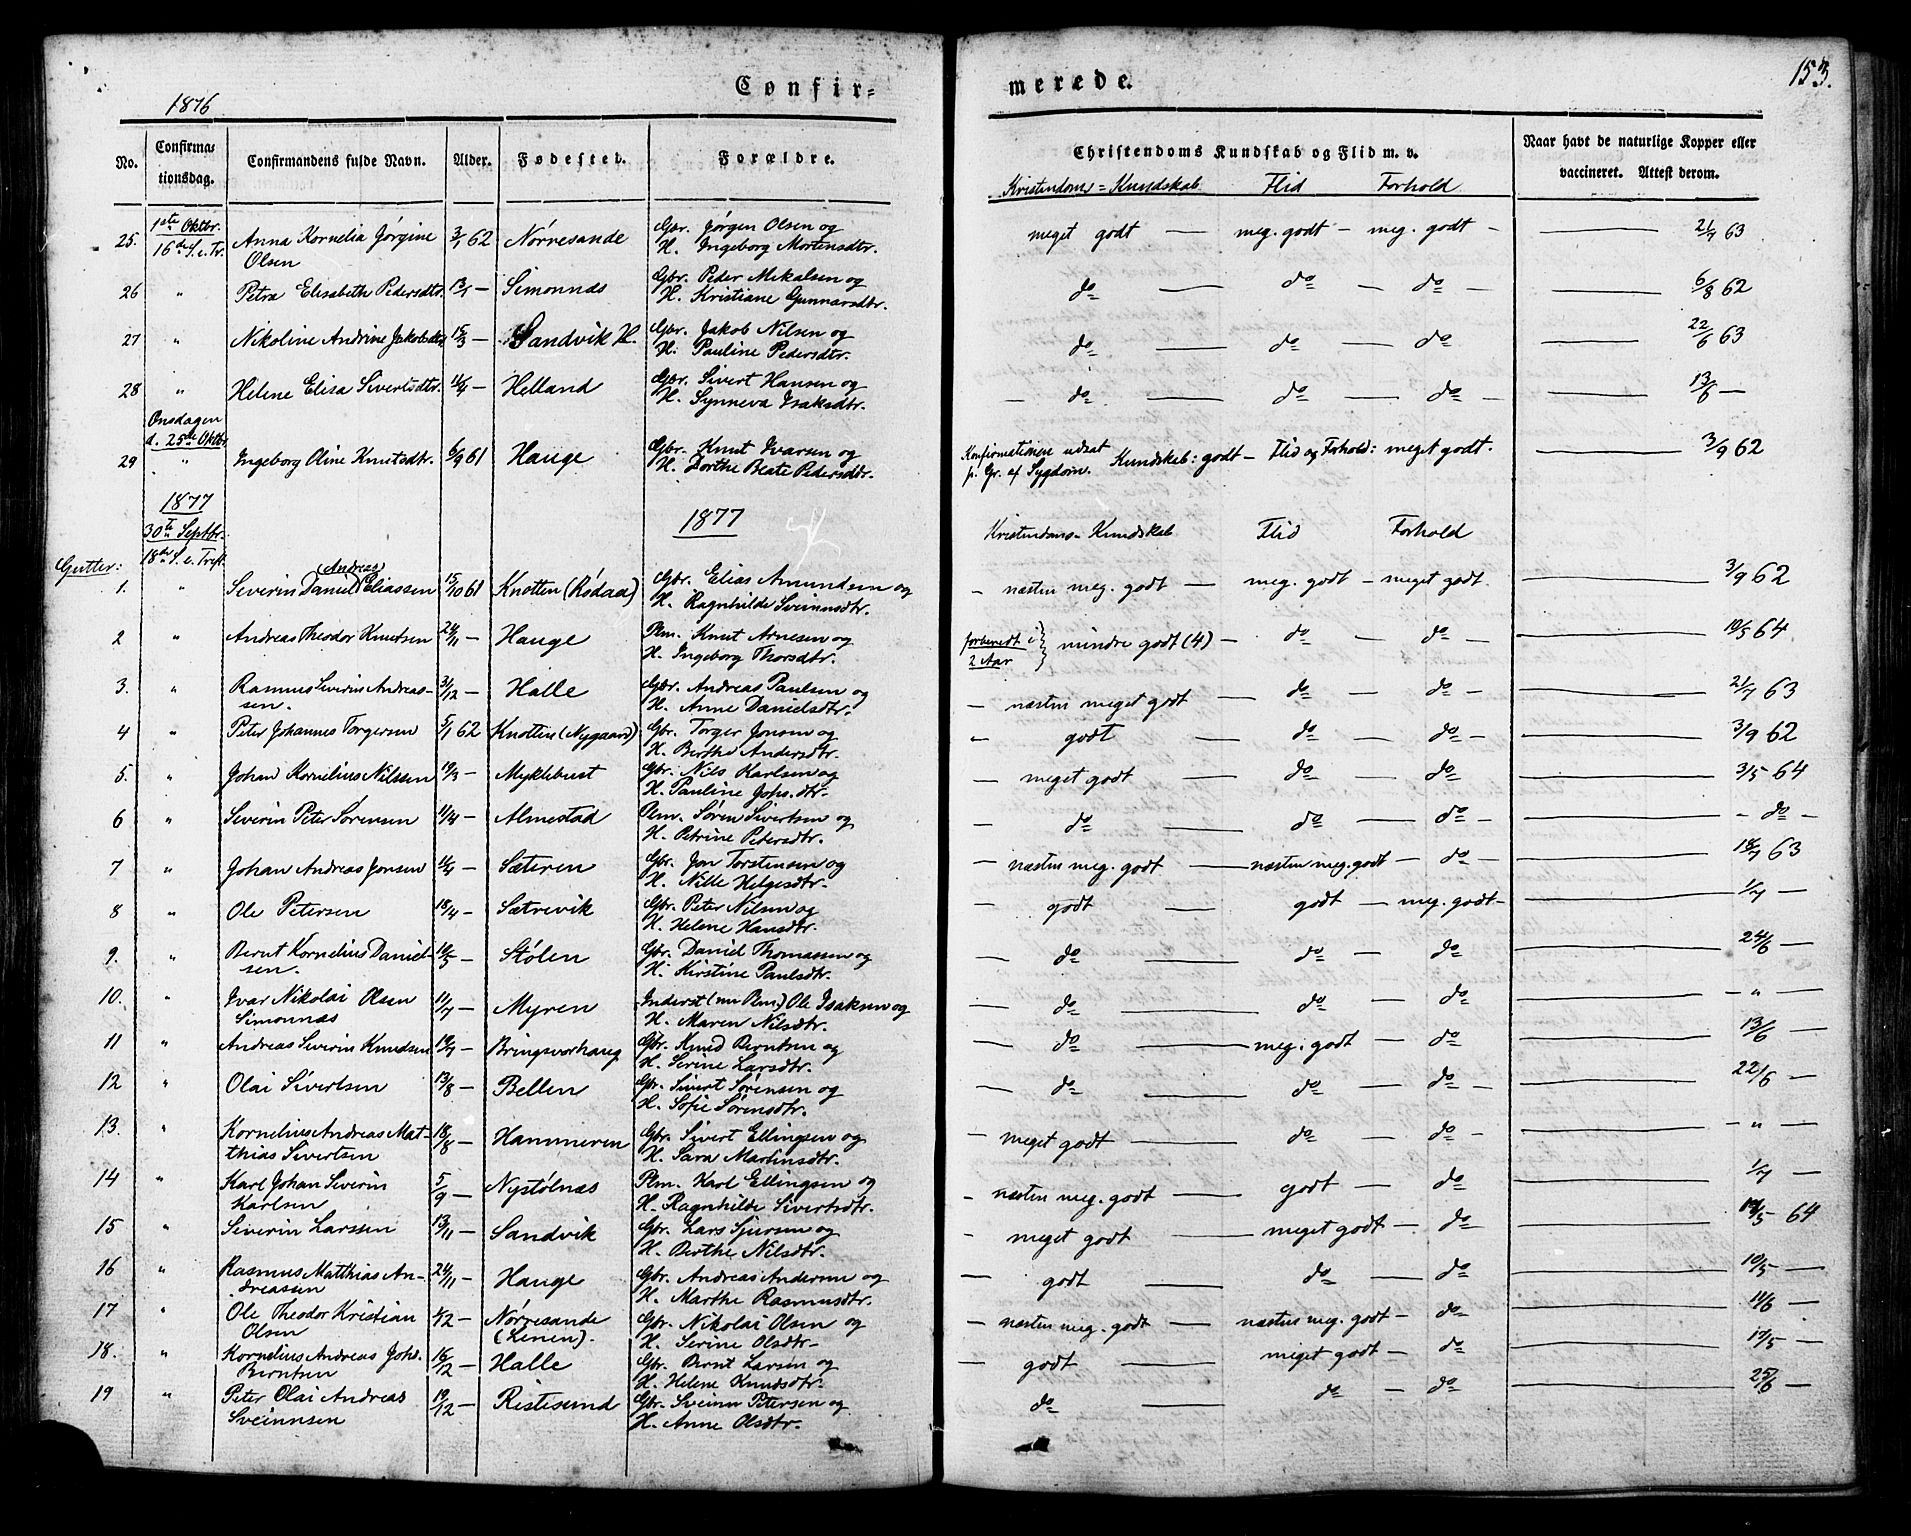 153.
Confir-
merede.
1876
No.
Confirma-
tionsdag.
Confirmandens fulde Navn.
Alder.
Fødested.
Forældre.
Christendoms Kundskab og Flid m. v.
Naar havt de naturlige Kopper eller
vaccineret. Attest derom.
Kristendoms-Kundskab Flid Forhold
1ste Oktbr.
16de S. e. Tr.
25. Anna Kornelia Jørgine 3/1 62 Nørresande Gbr. Jørgen Olsen og meget godt — meg. godt — meg. godt — 21/7 63
Olsen H. Ingeborg Mortensdtr.
26 " Petra Elisabeth Pedersdtr. 13/1 — Simonnæs Gbr. Peder Mekalsen og do — do — do — 6/8 62
H. Kristiane Gunnarsdtr.
27 " Nikoline Andrine Jakobsdtr. 15/3 — Sandvik H. Gbr. Jakob Nilsen og do — do do 22/6 63
H. Pauline Pedersdtr.
28 " Helene Elisa Sivertsdtr. 16/4 — Helland Gbr. Sivert Hansen og — do — do — do — 13/6 —
H. Synneva Isaksdtr.
Onsdagen
d. 25de Oktbr.
29 " Ingeborg Oline Knutsdtr. 6/9 61 Hauge Gbr. Knut Ivarsen og Konfirmationen udsat Kundskab: godt — Flid og Forhold: meget godt. 3/9 62
H. Dorthe Beate Pedersdtr. p. Gr. af Sygdom.
1877
1877
30te Septbr.
18de S. e. Tref.
Kristendoms-Kundskab Flid Forhold
Gutter:
(Andreas)
1. " Severin Daniel Eliassen 15/10 61 Knotten (Rødaa) Gbr. Elias Amundsen og — næsten meg. godt — meg. godt — meget godt. 3/9 62
H. Ragnhilde Sveinnsdtr.
2 " Andreas Theodor Knutsen 24/11 — Hauge Plm. Knut Arnesen og forberedt i mindre godt (4) — do — do — 10/5 64
H. Ingeborg Thorsdtr. 2 Aar
3. " Rasmus Severin Andreas- 31/12 — Halle Gbr. Andreas Paulsen og — næsten meget godt do — do — 21/7 63
sen. H. Anne Danielsdtr.
4 " Peter Johannes Torgersen 5/1 62 Knotten (Nygaard) Gbr. Torger Jonsen og " godt — do — do — 3/9 62
H. Berthe Andersdtr.
5. " Johan Kornelius Nilssen 19/3 — Myklebust Gbr. Nils Karlsen og — meget godt — do — do — 3/5 64
H. Pauline Johs.dtr.
6 " Severin Peter Sørensen 11/4 — Almestad Plm. Søren Sivertsen og — do — do — do — — do —
H. Petrine Petersdtr.
7 " Johan Andreas Jonsen — Sæteren Gbr. Jon Torstensen og — næsten meg. godt — næsten meg. godt — do — 18/7 63
H. Nille Helgesdtr.
8 " Ole Petersen 18/4 — Sætrevik Gbr. Peter Nilsen og — godt — godt — meg. godt — 1/7 —
H. Helene Hansdtr.
9. " Bernt Kornelius Daniel- — Stølen Gbr. Daniel Thomassen og — do — do — do 24/6 —
sen. H. Kirstine Paulsdtr.
10. " Ivar Nikolai Olsen 11/7 — Myren Inderst (nu Plm.) Ole Isaksen og — do — do — do — " —
Simonnæs H. Maren Nilsdtr.
11 " Andreas Severin Knudsen 19/7 — Bringsvorhaug Gbr. Knud Berntsen og — do — meg. godt — do — 13/6 —
H. Serine Larsdtr.
12 " Olai Sivertsen 13/8 — Bellen Gbr. Sivert Sørensen og — do — do — do — 22/6 —
H. Sofie Sørensdtr.
13. " Kornelius Andreas Mat- 18/8 — Hammeren Gbr. Sivert Ellingsen og — meget godt — do — do — — " —
thias Sivertsen H. Sara Martinsdtr.
14 " Karl Johan Severin 5/9 — Nystølnæs Plm. Karl Ellingsen og — næsten meg. godt — godt — do 1/7 —
Karlsen H. Ragnhilde Sivertsdtr.
15 " Severin Larssen 13/11 — Sandvik Gbr. Lars Sjursen og — meget godt — meget godt — do — 64
H. Berthe Nilsdtr.
16 " Rasmus Matthias An- 24/11 — Hauge Gbr. Andreas Andersen og — godt — do — do — 10/5 —
dreassen H. Marthe Rasmusdtr.
17 " Ole Theodor Kristian — Nørresande Gbr. Nikolai Olsen og — næsten meg. godt — næsten meg. godt — do — —
Olsen (Lenen). H. Serine Olsdtr.
18. " Kornelius Andreas Johs. 16/12 — Halle Gbr. Bernt Larsen og — godt — meget godt — do — —
Berntsen H. Helene Knudsdtr.
19 " Peter Olai Andreas 19/12 — Ristesund Gbr. Sveinn Petersen og do — do — do — 25/6 —
Sveinnsen H. Anne Olsdtr.